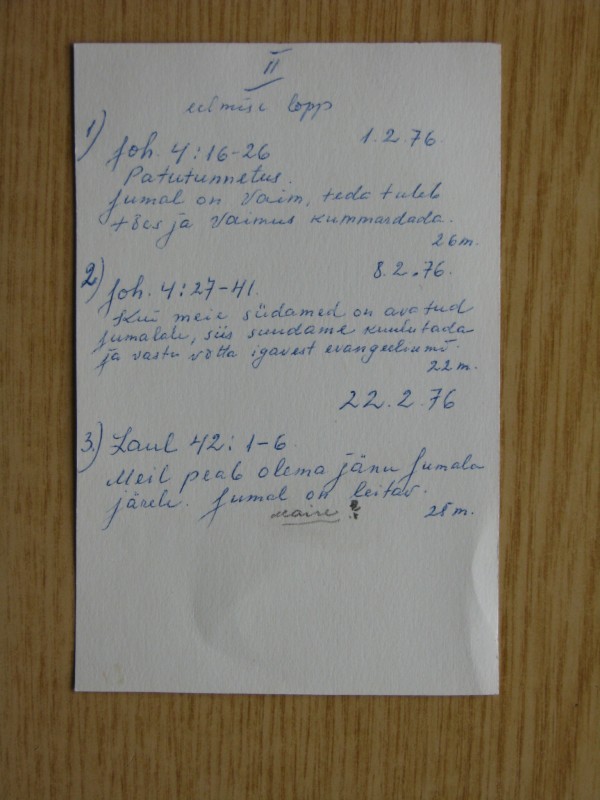 II
eelmise lopp
1) Joh. 4:16-26 1.2.76.
Patutunnetus.
Jumal on Vaim, teda tuleb
tões ja Vaimus kummardada.
26 m.
2) Joh. 4:27-41. 8.2.76.
Kui meie südamed on avatud
Jumalale, siis suudame kuulutada
ja vastu võtta igavest evangeeliumi.
22 m.
22.2.76
3.) Laul 42:1-6
Meil peab olema jänu Jumala
järele. Jumal on leitav.
28 m.